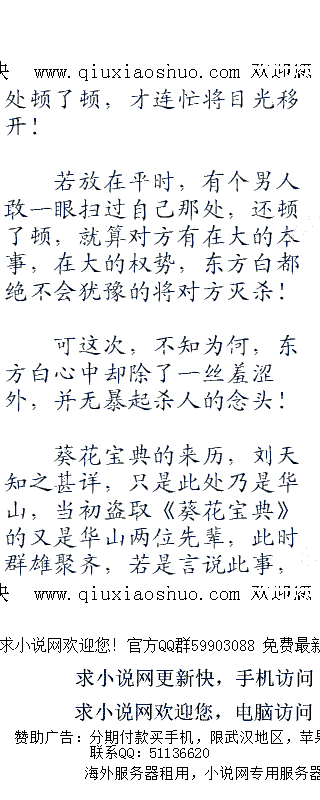 www.qiuxiaoshuo.com 欢迎您
处顿了顿，才连忙将目光移
开！
若放在平时，有个男人
敢一眼扫过自己那处，还顿
了顿，就算对方有在大的本
事，在大的权势，东方白都
绝不会犹豫的将对方灭杀！
可这次，不知为何，东
方白心中却除了一丝羞涩
外，并无暴起杀人的念头！
葵花宝典的来历，刘天
知之甚详，只是此处乃是华
山，当初盗取《葵花宝典》
的又是华山两位先辈，此时
群雄聚齐，若是言说此事，
www.qiuxiaoshuo.com 欢迎您
求小说网欢迎您! 官方QQ群59903088 免费最新
求小说网更新快，手机访问
求小说网欢迎您，电脑访问
赞助广告：分期付款买手机，限武汉地区，苹果
联系QQ：51136620
海外服务器租用，小说网专用服务器